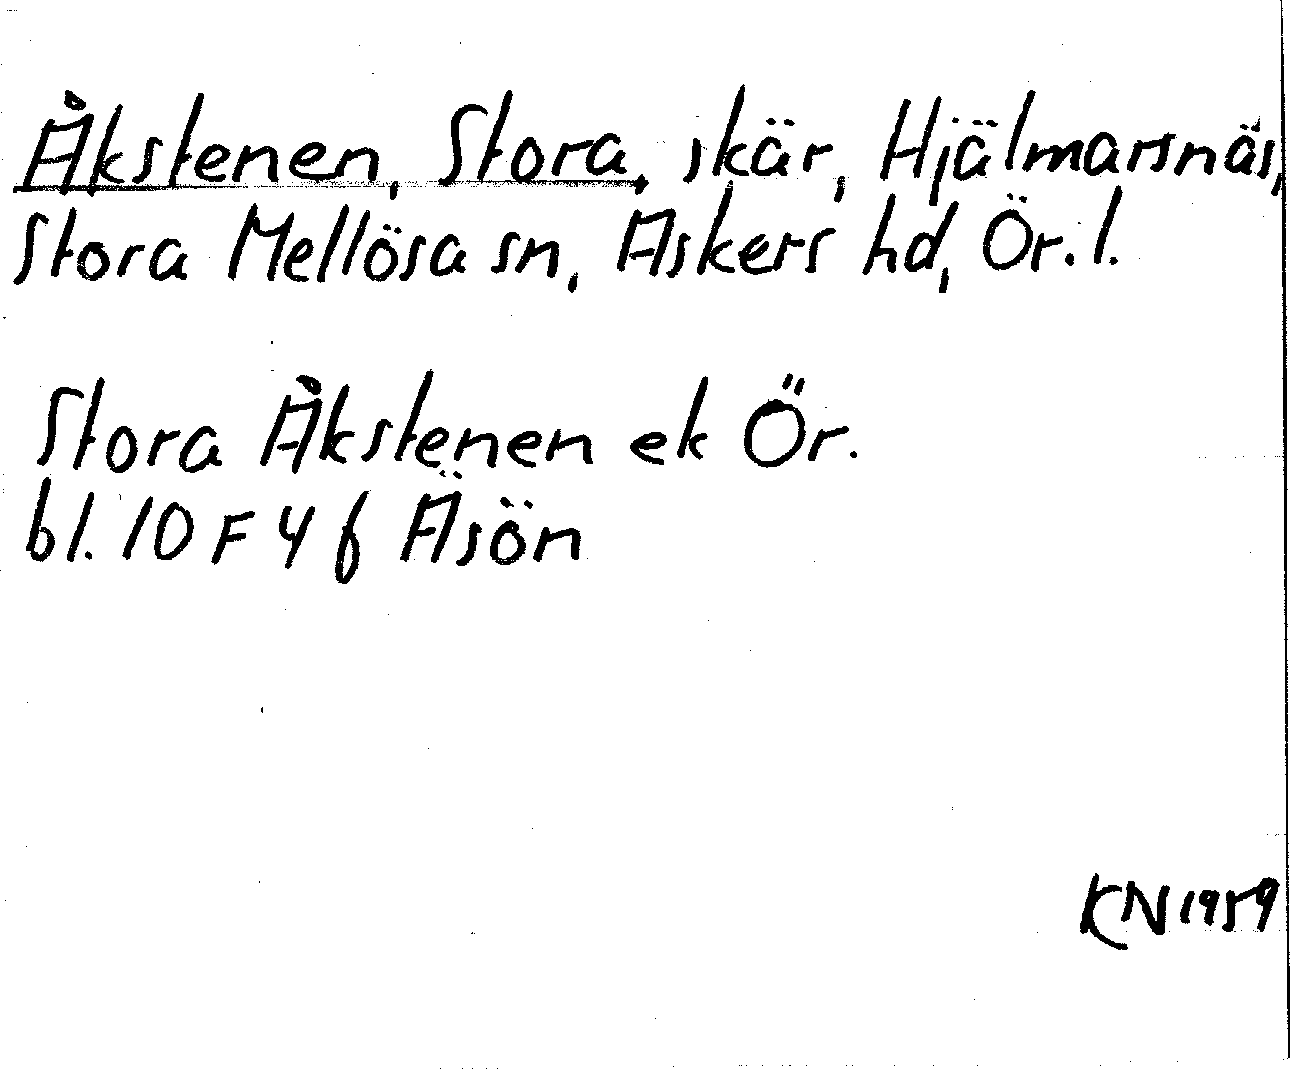 Åkstenen, Stora, skär, Hjälmarsnäs,
Stora Mellösa sn, Askers hd, Ör. l.
Stora Åkstenen ek Ör.
bl. 10 F 4 f Äsön
KN 1959